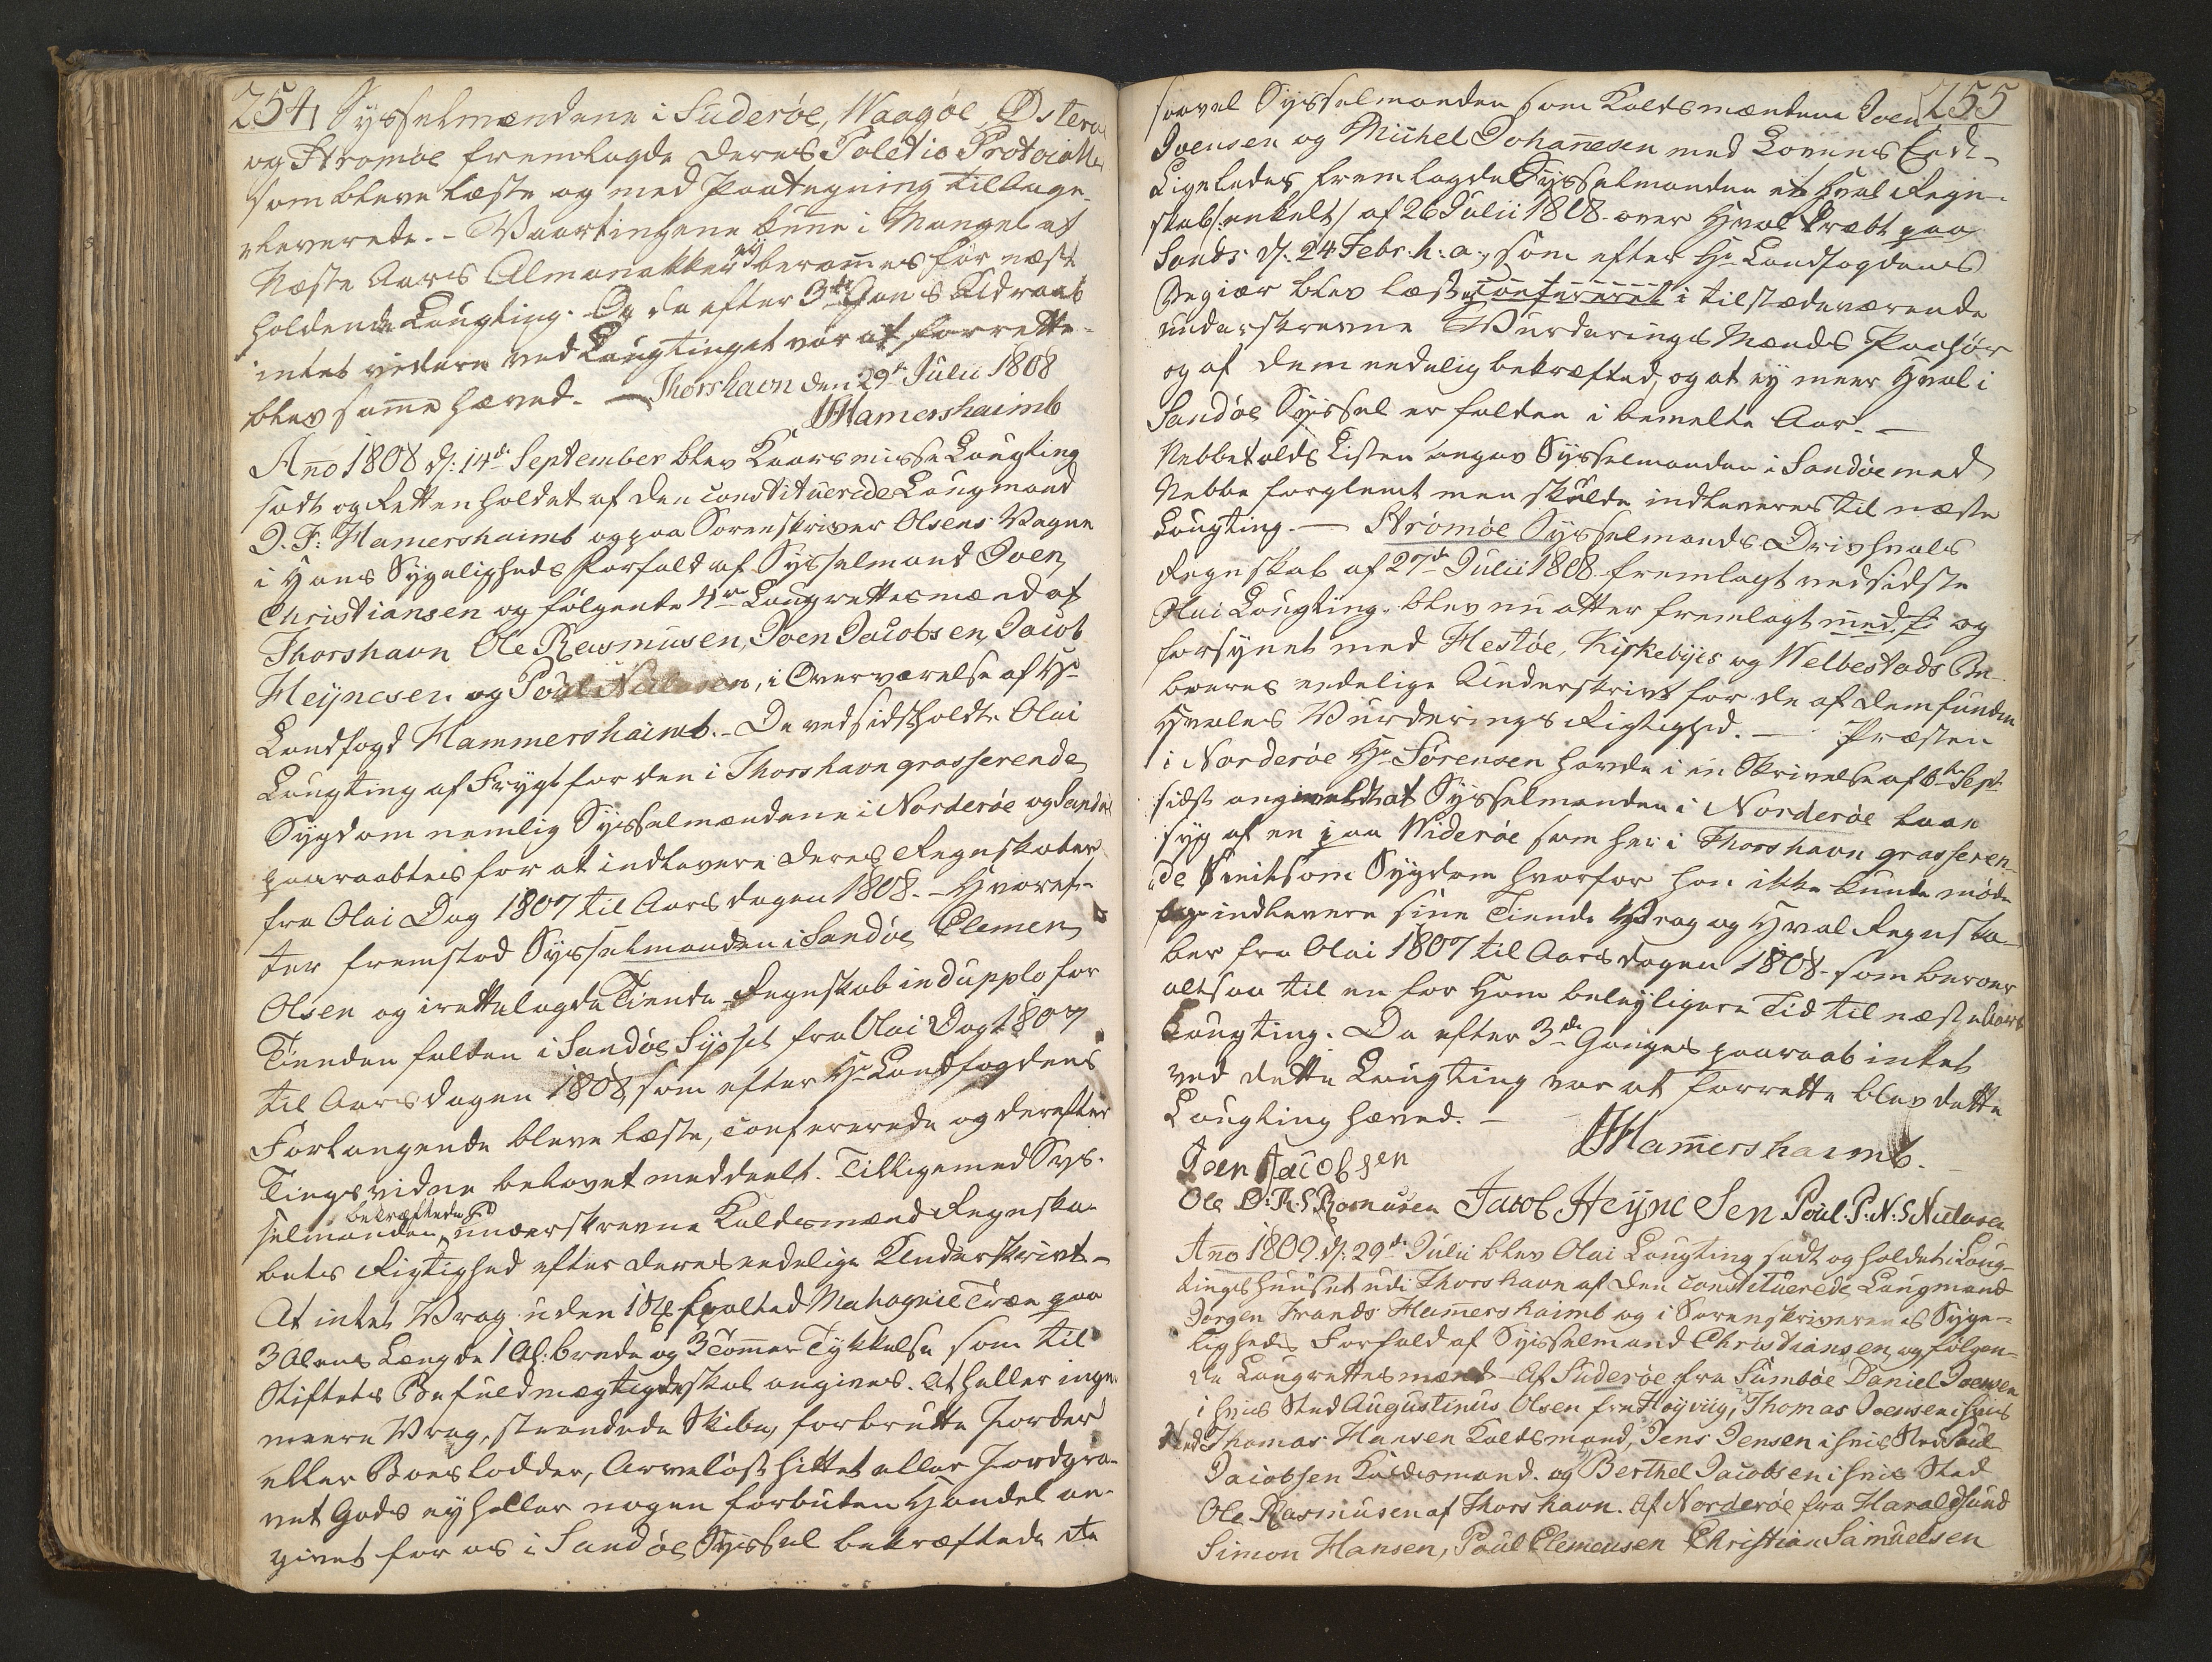 254
Sysselmændene i Suderøe, Waagøe, Østerøe
og Strømøe fremlagde deres Politie Protocoller
som bleve læste og med Paategning tilbage-
leverede. - Vaartingene kunne i Mangel af
Næste Aars Almanakker ej berammes før næst
holdende Laugting. Og da efter 3de Gang Udraab
intet videre ved Laugtinget var at forrette
blev samme hævet. - Thorshavn den 29de Julii 1808
JFHamershaimb
Anno 1808 d: 14de September blev Kaarsmisse Laugting
sadt og Retten holdet af den constituerede Laugmand
J. F: Hamershaimb og paa Sorenskriver Olsens Vegne
i Hans Sygeligheds Forfald af Sysselmand Joen
Christiansen og følgende 4re Laugrettesmænd af
Thorshavn Ole Rasmusen, Joen Jacobsen, Jacob
Heynesen og Poul Nielsen, i Overværelse af Hr
Landfogd Hammershaimb. - Da ved sidstholdte Olai
Laugting af Frygt for den i Thorshavn grasserende
Sygdom nemlig Sysselmændene i Norderøe og Sandøe
paaraabtes for at indlevere deres Regnskaber
fra Olai Dag 1807 til Aarsdagen 1808. - Hvoref-
ter fremstod Sysselmanden i Sandøe Clemen
Olsen og irettelagde Tiende Regnskab in dupplo for
Tienden falden i Sandøe Syssel fra Olai Dag 1807
til Aarsdagen 1808, som efter Hr Landfogdens
Forlangende bleve læste, confererede og derefter
Tingsvidne belovet meddeelt. Tilligemed Sys-
selmanden bekræftede underskrevne Kaldsmænd Regnska-
bets Rigtighed efter deres eedelige Underskrivt. -
At intet Vrag uden 1 St: spolted Mahognie Træe paa
3 Alens Længde 1 Al: brede og 3 Tommer Tykkelse som til
Stiftets Befuldmægtigede skal angives. At heller ingen
meere Vrag, strandede Skibe, forbrutte Jorder
eller Boeslodder, Arveløst hittet eller Jordgra-
vet Gods ey heller nogen forbuden Handel an-
givet for os i Sandøe Syssel bekræftede de
255
saavel Sysselmanden som Kaldsmændene Joen
Joensen og Michel Johannesen med Lovens Eed. -
Ligeledes fremlagde Sysselmanden et Hval Regn-
skab enkelt af 26 Julii 1808 over Hval dræbt paa
Sands d: 24 Febr. h: a:, som efter Hr Landfogdens
Begiær blev læst og confereret i tilstædeværende
underskrevne Vurderings Mænds Paahør
og af dem eedelig bekræftet, og at ey meer Hval i
Sandøe Syssel er falden i bemelte Aar. -
Nebbetolds Listen angav Sysselmanden i Sandøe med
Nebbe forglemt men skulde indleveres til næste
Laugting. - Strømøe Sysselmands Drivhvals
Regnskab af 27de Julii 1808 fremlagt ved sidste
Olai Laugting. blev nu atter fremlagt og
forsynet med Hestøe, Kirkebyes og Welbestads Be-
boeres eedelige Underskrivt for de af dem funden
Hvales Vurderings Rigtighed. - Præsten
i Norderøe Hr Sørensen havde i en Skrivelse af 6te Sept:
sidst anmeldt at Sysselmanden i Norderøe laae
syg af en paa Widerøe som her i Thorshavn grasseren-
de Smitsom Sygdom hvorfor han ikke kunde møde
og indlevere sine Tiende Vrag og Hval Regnska-
ber fra Olai 1807 til Aarsdagen 1808 som beroer
altsaa til en for Ham beleyligere Tid til næste
Laugting. Da efter 3de Ganges paaraab intet
ved dette Laugting var at forrette blev dette
Laugting hæved. -
JFHamershaimb.
Joen Jacobsen
Ole O: R: S Rasmusen Jacob Heyne Sen Poul: P: N: S Nielsen
Anno 1809. d: 29de Julii blev Olai Laugting sadt og holdet i Laug-
tingshuuset udi Thorshavn af den constituerede Laugmand
Jørgen Frands Hamershaimb og i Sorenskriverens Syge-
ligheds Forfald af Sysselmand Christiansen, og følgen-
de Laugrettesmænd - Af Suderøe fra Sumbøe Daniel Joensen
i hvis Sted Augustinus Olsen fra Høyviig, Thomas Joensen i hvis
Sted Thomas Hansen Kaldsmand, Jens Jensen i hvis Sted Poul
Jacobsen Kaldsmand. og Berthel Jacobsen i hvis Sted
Ole Rasmusen af Thorshavn. Af Norderøe fra Haraldsund
Simon Hansen, Poul Clemensen Christian Samuelsen